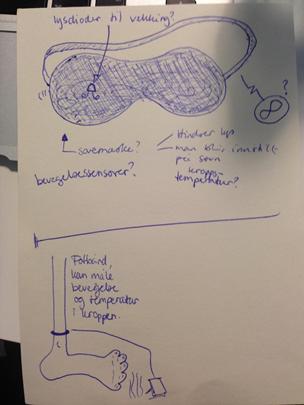 lysdioder til vekking?
?
sovemaske?
bevegelsessensorer?
Hindrer lys
man blir innstilt
på søvn
kropps-
temperatur?
Fotbånd,
kan måle
bevegelse
og temperatur
i kroppen.